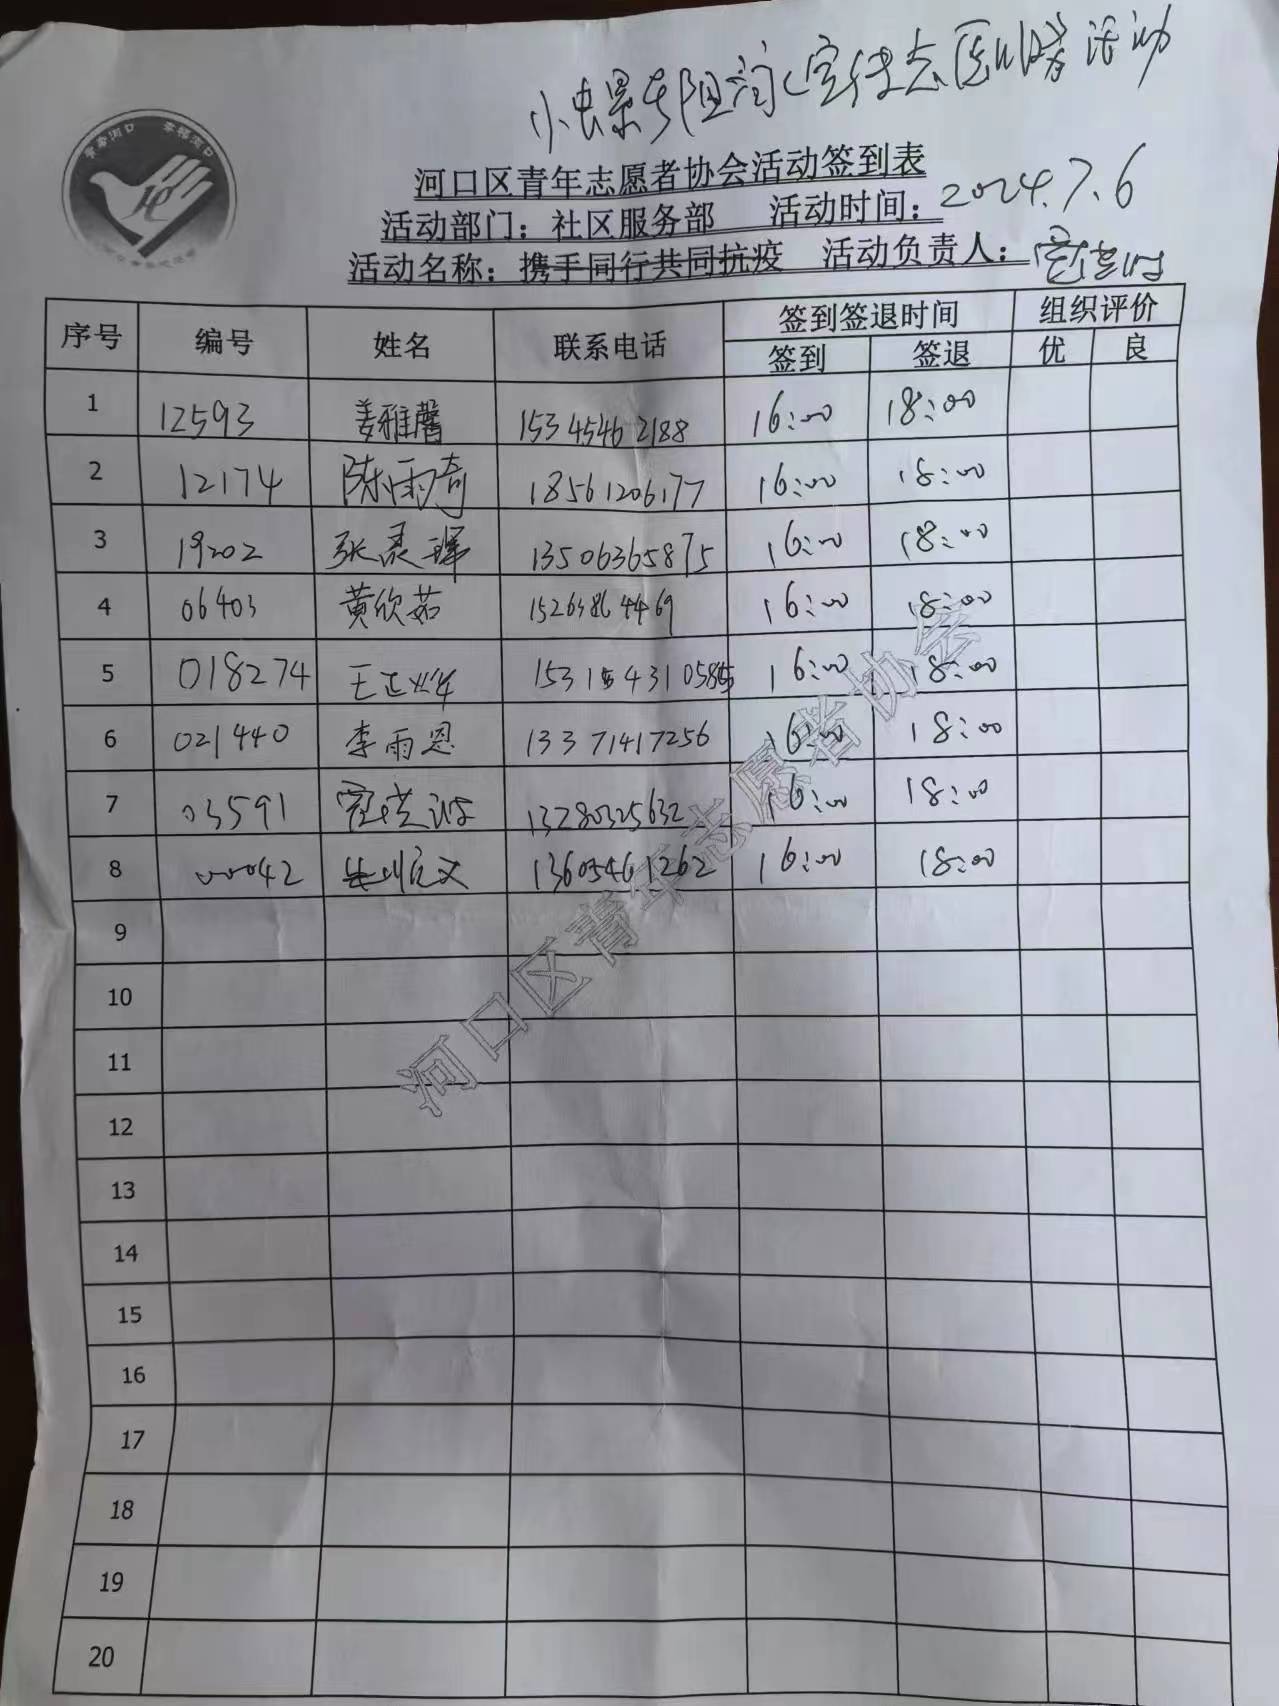 活动
河口区青年志愿者协会活动签到表
活动部门：社区服务部 活动时间：2024.7.6
活动名称：携手同行共同抗疫 活动负责人：
序号 编号 姓名 联系电话 签到签退时间 组织评价
签到 签退 优 良
1 12593 姜雅馨 15345462188 16:00 18:00
2 12174 陈雨奇 18561206177 16:00 18:00
3 19202 张灵琿 13506365875 16:00 18:00
4 06403 黄欣茹 15263864469 16:00 18:00
5 018274 16:00 18:00
6 021440 李雨恩 13371417256 16:00 18:00
7 03591 13280325632 16:00 18:00
8 00042 13605461262 16:00 18:00
9
10
11
12
13
14
15
16
17
18
19
20
河口区青年志愿者协会